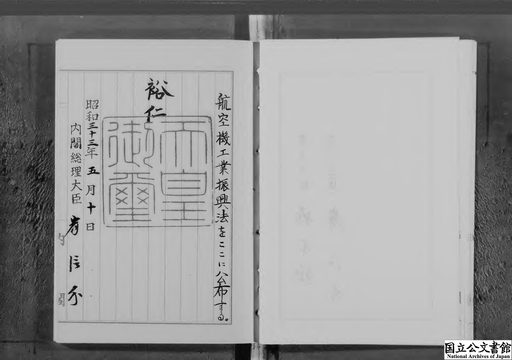 航空機工業振興法をここに公布する。
裕仁
天皇御璽
昭和三十三年五月十日
内閣総理大臣 岸信介
内閣
国立公文書館
National Archives of Japan